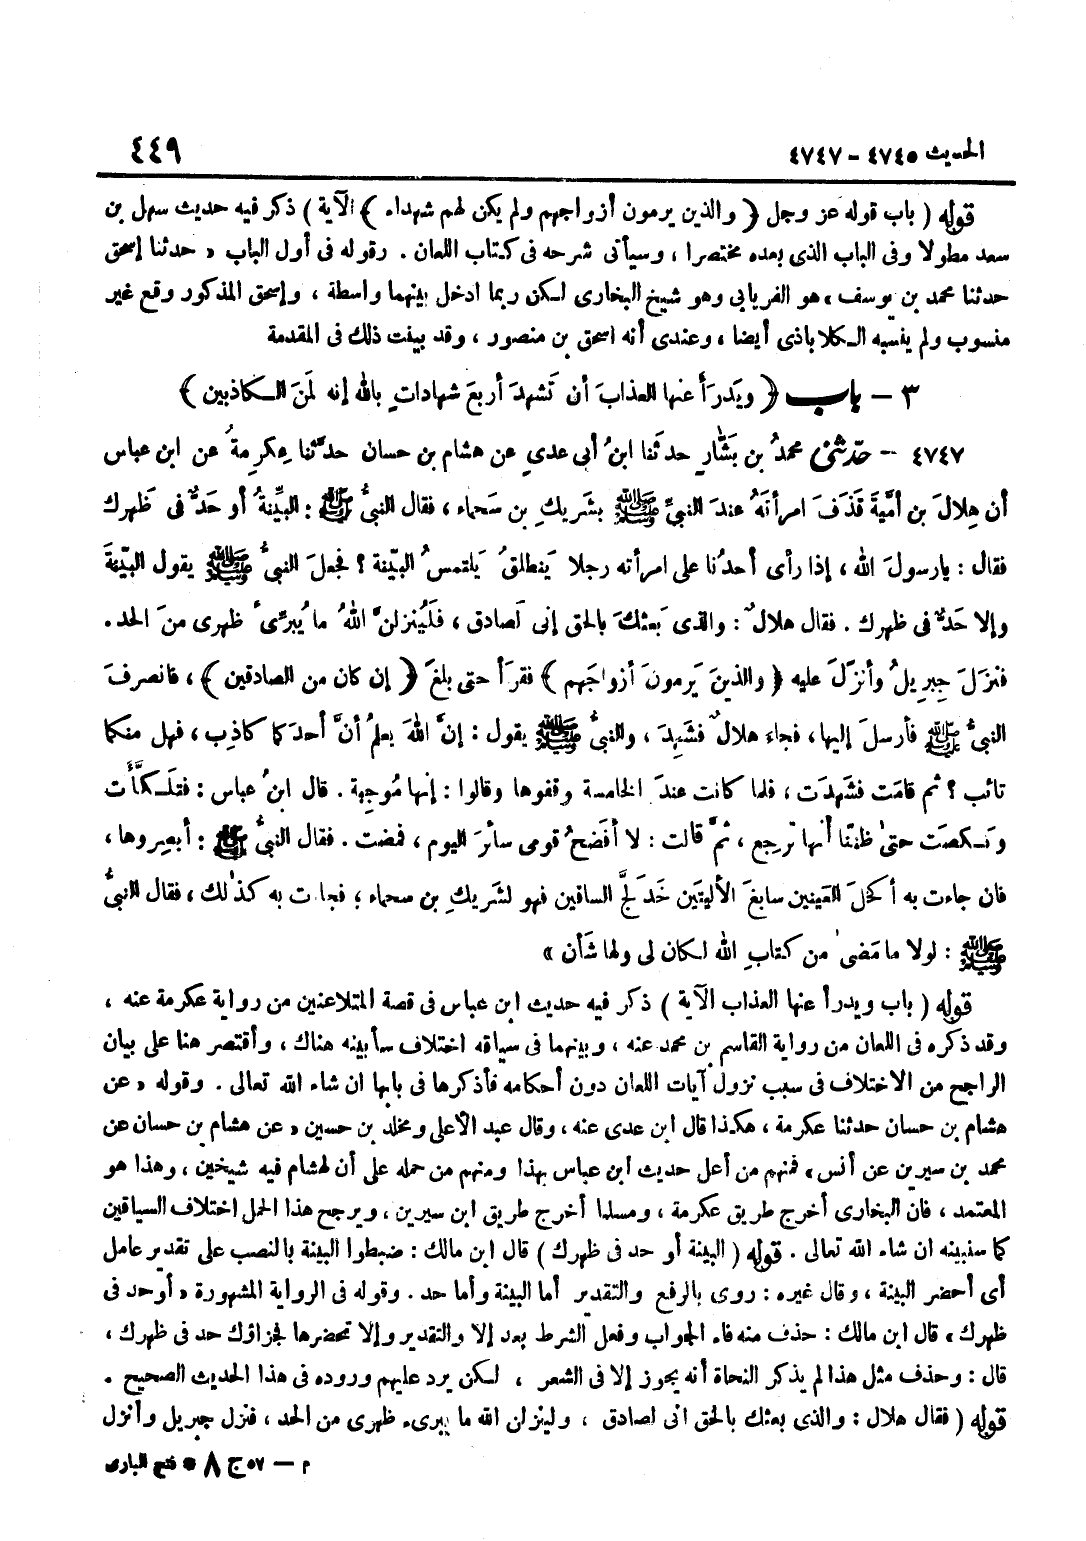 الحديث ٤٧٤٥ - ٤٧٤٧
٤٤٩
قوله ( باب قوله عز وجل ﴿ والذين يرمون أزواجهم ولم يكن لهم شهداء ﴾ الآية ) ذكر فيه حديث سهل بن
سعد مطولا وفى الباب الذى بعده مختصرا ، وسيأتى شرحه فى كتاب اللعان . رقوله فى أول الباب « حدثنا إسحق
حدثنا محمد بن يوسف » هو الفريابي وهو شيخ البخارى لكن ربما ادخل بينهما واسطة ، وإسحق المذكور وقع غير
منسوب ولم ينسبه الكلاباذى أيضا ، وعندى أنه اسحق بن منصور ، وقد بينت ذلك فى المقدمة
٣ - باب ﴿ ويَدرَأ عنها العذابَ أن تَشهدَ أربعَ شهاداتٍ بالله إنه لمنَ الكاذبين ﴾
٤٧٤٧ - حدّثنى محمدُ بن بَشّارٍ حدثَنا ابنُ أبى عدى عن هشام بن حسان حدَّثنا عِكرِمةُ عن ابن عباس
أن هِلالَ بن أمَّيةَ قَذَفَ امرأتَهُ عندَ النبىِّ ﷺ بشَريكِ بن سَحماء ، فقال النبىُّ ﷺ : البيِّنةُ أو حَدٌّ فى ظَهرك
فقال : يارسولَ الله ، إذا رأى أحدُنا على امرأته رجلا يَنطلقُ يَلتمسُ البيّنة ؟ فجعلَ النبىُّ ﷺ يقول البيّنةَ
وإلا حَدٌّ فى ظهرك . فقال هلالٌ : والذى بَعثكَ بالحق إنى لَصادق ، فلَيُنزلنَّ اللهُ ما يُبرِّىُ ظهرى منَ الحد .
فنزَلَ جِبريلُ وأنزَلَ عليه ﴿ والذينَ يَرمونَ أزواجَهم ﴾ فقرَأ حتى بلغَ ﴿ إن كان من الصادقين ﴾ ، فانصرفَ
النبىُّ ﷺ فأرسلَ إليها، فجاء هلالٌ فشَهِدَ ، والنبىُّ ﷺ يقول : إنَّ اللهَ يعلمُ أنَّ أحدَكما كاذِب، فهل منكما
تائب ؟ ثم قامَت فشَهدَت ، فلما كانت عندَ الخامسة وقفوها وقالوا : إنها مُوجِبة . قال ابنُ عباس : فتلكَّأَت
ونَكصَت حتىٰ ظنَنّا أنها تَرجع ، ثمَّ قالت : لا أفضَحُ قومى سائرَ اليوم ، فمضت . فقال النبىُّ ﷺ : أبصِروها ،
فان جاءت به أكحَلَ العَينين سابغَ الأليتَين خَدَلَّجَ الساقين فهو لشَريكِ بن سحماء ؛ فجاءت به كذٰلك ، فقال النبىُّ
ﷺ : لولا ما مَضىٰ من كتابِ الله لكان لى ولها شَأن »
قوله ( باب ويدرأ عنها العذاب الآية ) ذكر فيه حديث ابن عباس فى قصة المتلاعنين من رواية عكرمة عنه ،
وقد ذكره فى اللعان من رواية القاسم بن محمد عنه ، وبينهما فى سياقه اختلاف سأبينه هناك ، وأقتصر هنا على بيان
الراجح من الاختلاف فى سبب نزول آيات اللعان دون أحكامه فأذكرها فى بابها ان شاء الله تعالى . وقوله « عن
هشام بن حسان حدثنا عكرمة » هكذا قال ابن عدى عنه ، وقال عبد الأعلى ومخلد بن حسين « عن هشام بن حسان عن
محمد بن سيرين عن أنس » فمنهم من أعل حديث ابن عباس بهذا ومنهم من حمله على أن لهشام فيه شيخين ، وهذا هو
المعتمد ، فان البخارى أخرج طريق عكرمة ، ومسلما أخرج طريق ابن سيرين ، ويرجح هذا الحمل اختلاف السياقين
كما سنبينه ان شاء الله تعالى . قوله ( البينة أو حد فى ظهرك ) قال ابن مالك : ضبطوا البينة بالنصب على تقدير عامل
أى أحضر البينة ، وقال غيره : روى بالرفع والتقدير أما البينة وأما حد . وقوله فى الرواية المشهورة « أو حد فى
ظهرك » قال ابن مالك : حذف منه فاء الجواب وفعل الشرط بعد إلا والتقدير وإلا تحضرها لجزاؤك حد فى ظهرك ،
قال : وحذف مثل هذا لم يذكر النحاة أنه يجوز إلا فى الشعر ، لكن يرد عليهم وروده فى هذا الحديث الصحيح .
قوله ( فقال هلال : والذى بعثك بالحق انى لصادق ، ولينزلن الله ما يبرىء ظهرى من الحد ، فنزل جبريل وأنزل
م - ٥٧ ج ٨ * فتح البارى